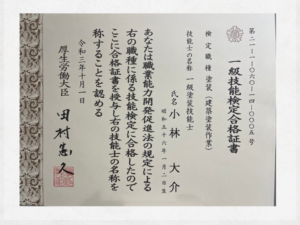 第二一-一-〇六〇-一四-〇〇〇五号
一級技能検定合格証書
検定職種 塗装(建築塗装作業)
技能士の名称 一級塗装技能士
氏名 小林 大介
昭和五十六年一月二日生
あなたは職業能力開発促進法の規定による
右の職種に係る技能検定に合格したので
ここに合格証書を授与し右の技能士の名称を
称することを認める
令和三年十月一日
厚生労働大臣 田村憲久